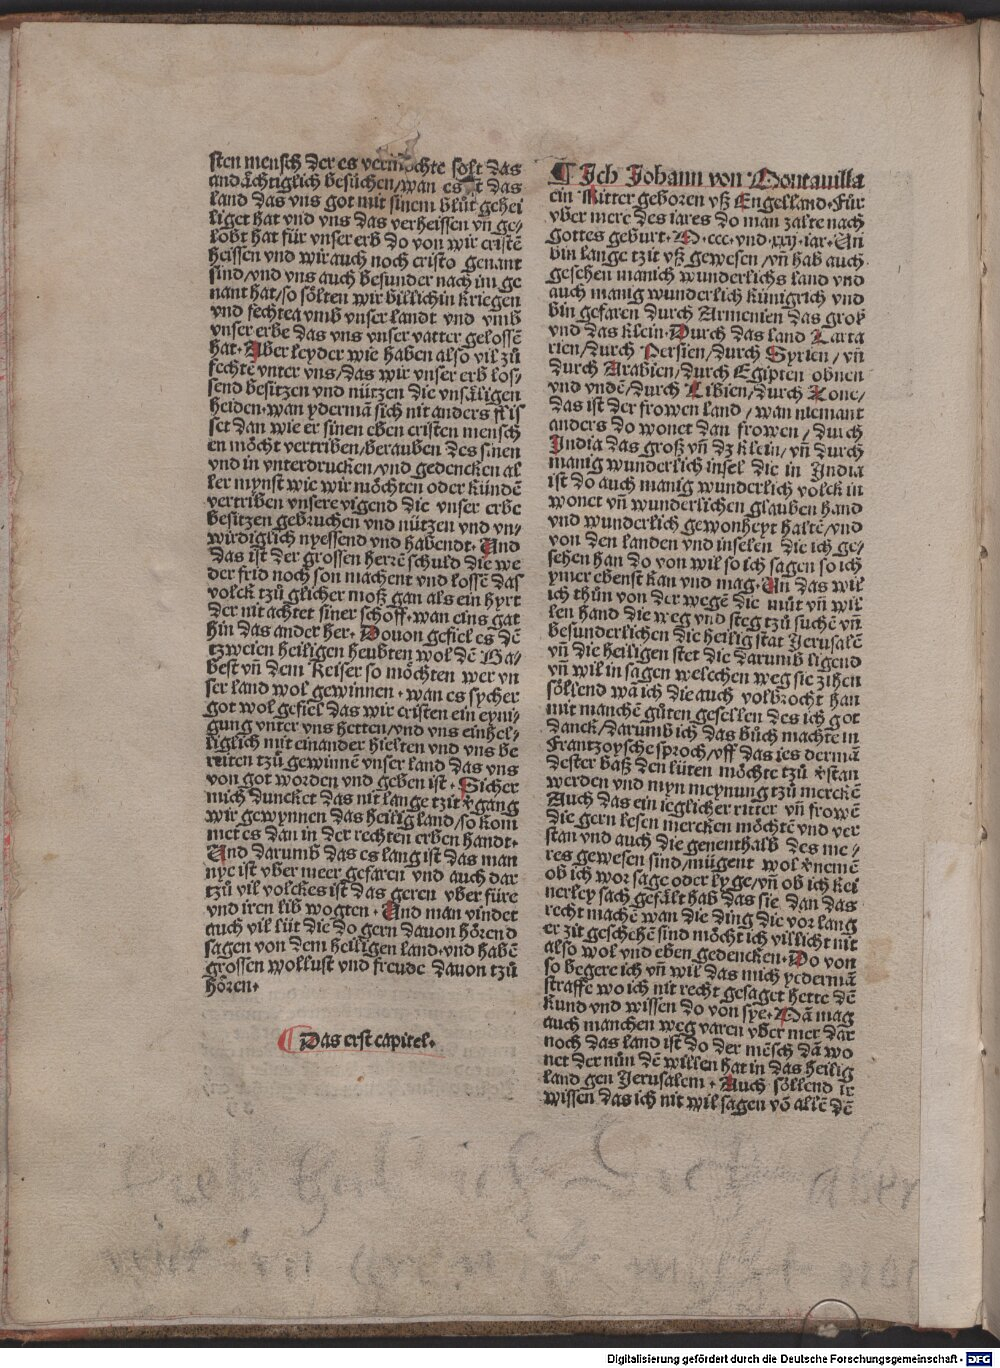 sten mensch der es vermöchte solt das
andåchtiglich besůchen/wan es ist das
land das vns got mit sinem blůt gehei
liget hat vnd vns das verheissen vn̄ ge⸗
lobt hat für vnser erb do von wir cristē
heissen vnd wir auch noch cristo genant
sind/vnd vns auch besunder nach im ge
nant hat/so sölten wir billichin kriegen
vnd fechten vmb vnser landt vnd vmb
vnser erbe das vns vnser vatter gelossē
hat· Aber leyder wie haben also vil zů
fechtē vnter vns/das wir vnser erb los/
send besitzen vnd nützen die vnsåligen
heiden·wan ydermā sich nit anders flis
set dan wie er sinen eben cristen mensch
en möcht vertriben/berauben des sinen
vnd in vnterdrucken/vnd gedencken al
ler mynst wie wir möchten oder kündē
vertriben vnsere vigend die vnser erbe
besitzen gebruchen vnd nützen vnd vn/
wirdiglich nyessend vnd habendt· Und
das ist der grossen herrē schuld die we
der frid noch son machent vnd lossē das
volck tzů glicher moß gan als ein hyrt
der nit achtet siner schoff·wan eins gat
hin das ander her· Douon gefiel es dē
tzweien heiligen heubten wol dē Ba/
best vn̄ dem Keiser so möchten wer vn
ser land wol gewinnen · wan es sycher
got wol gefiel das wir cristen ein eyni/
gung vnter vns hetten/vnd vns einhel/
liglich mit einander hielten vnd vns be
reiten tzů gewinnē vnser land das vns
von got worden vnd geben ist · Sicher
mich duncket das nit lange tzit v̄gang
wir gewynnen das heilig land/so kom
met es dan in der rechten erben handt·
Und darumb das es lang ist das man
nye ist vber meer gefaren vnd auch dar
tzů vil volckes ist das geren vber füre
vnd iren lib wogten · Und man vindet
auch vil lüt die do gern dauon hörend
sagen von dem heiligen land·vnd habē
grossen wollust vnd freude dauon tzů
hören·
Das erst capitel·
¶ Ich Johann von Montauilla
ein Ritter geboren vß Engelland·Für
vber mere des iares do man zalte nach
Gottes geburt· M·ccc·vnd·xxij·iar·Un
bin lange tzit vß gewesen/vn̄ hab auch
gesehen manich wunderlichs land vnd
auch manig wunderlich künigrich vnd
bin gefaren durch Armenien das groß
vnd das klein·Durch das land Tarta
rien/durch Persien/durch Syrien/vn̄
durch Arabien/durch Egipten obnen
vnd vndē/durch Libien/durch Xone/
das ist der frowen land/wan niemant
anders do wonet dan frowen/durch
India das groß vn̄ dz klein/vn̄ durch
manig wunderlich insel die in India
ist do auch manig wunderlich volck in
wonet vn̄ wunderlichen glauben hand
vnd wunderlich gewonheyt haltē/vnd
von den landen vnd inselen die ich ge/
sehen han do von wil so ich sagen so ich
ymer ebenst kan vnd mag·Un das wil
ich thůn von der wegē die můt vn̄ wil
len hand die weg vnd steg tzů suchē vn̄
besunderlichen die heilig stat Jerusalē
vn̄ die heiligen stet die darumb ligend
vn̄ wil in sagen welechen weg sie zihen
söllend wā ich die auch volbrocht han
mit manchē gůten gesellen des ich got
danck/darumb ich das bůch machte in
Frantzoysche sproch/vff das ies dermā
dester baß den lüten möchte tzů v̄stan
werden vnd myn meynung tzů merckē
Auch das ein ieglicher ritter vn̄ frowē
die gern lesen mercken möchtē vnd ver
stan vnd auch die genenthalb des me/
res gewesen sind/mügent wol v̄nemē
ob ich wor sage oder lyge/vn̄ ob ich kei
nerley sach gefålt hab das sie dan das
recht machē wan die ding die vor lang
er zit geschehē sind möcht ich villicht nit
also wol vnd eben gedencken· Do von
so begere ich vn̄ wil das mich yedermā
straffe wo ich nit recht gesaget hette dē
kund vnd wissen do von sye· Mā mag
auch manchen weg varen vber mer dar
noch das land ist do der mēsch dā wo
net der nůn dē willen hat in das heilig
land gen Jerusalem · Auch söllend ir
wissen das ich nit wil sagen vō allē dē
Digitalisierung gefördert durch die Deutsche Forschungsgemeinschaft - DFG